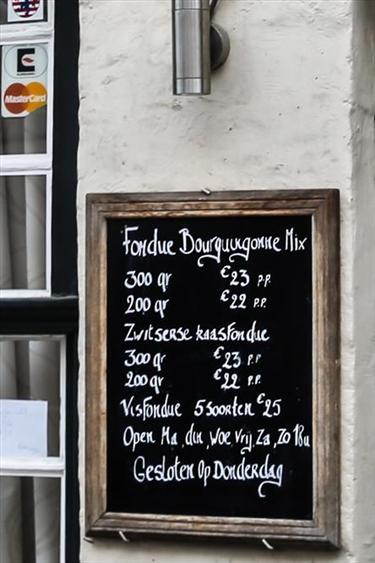 MasterCard
Fondue Bourguugonne Mix
300 gr €23 p.p.
200 gr €22 p.p.
Zwitserse kaasfondue
300 gr €23 p.p.
200 gr €22 p.p.
Visfondue 5 soorten €25
Open Ma, din, Woe, Vrij, Za, Zo 18u
Gesloten Op Donderdag